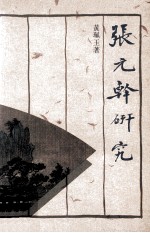 張元幹研究
黃珮玉著